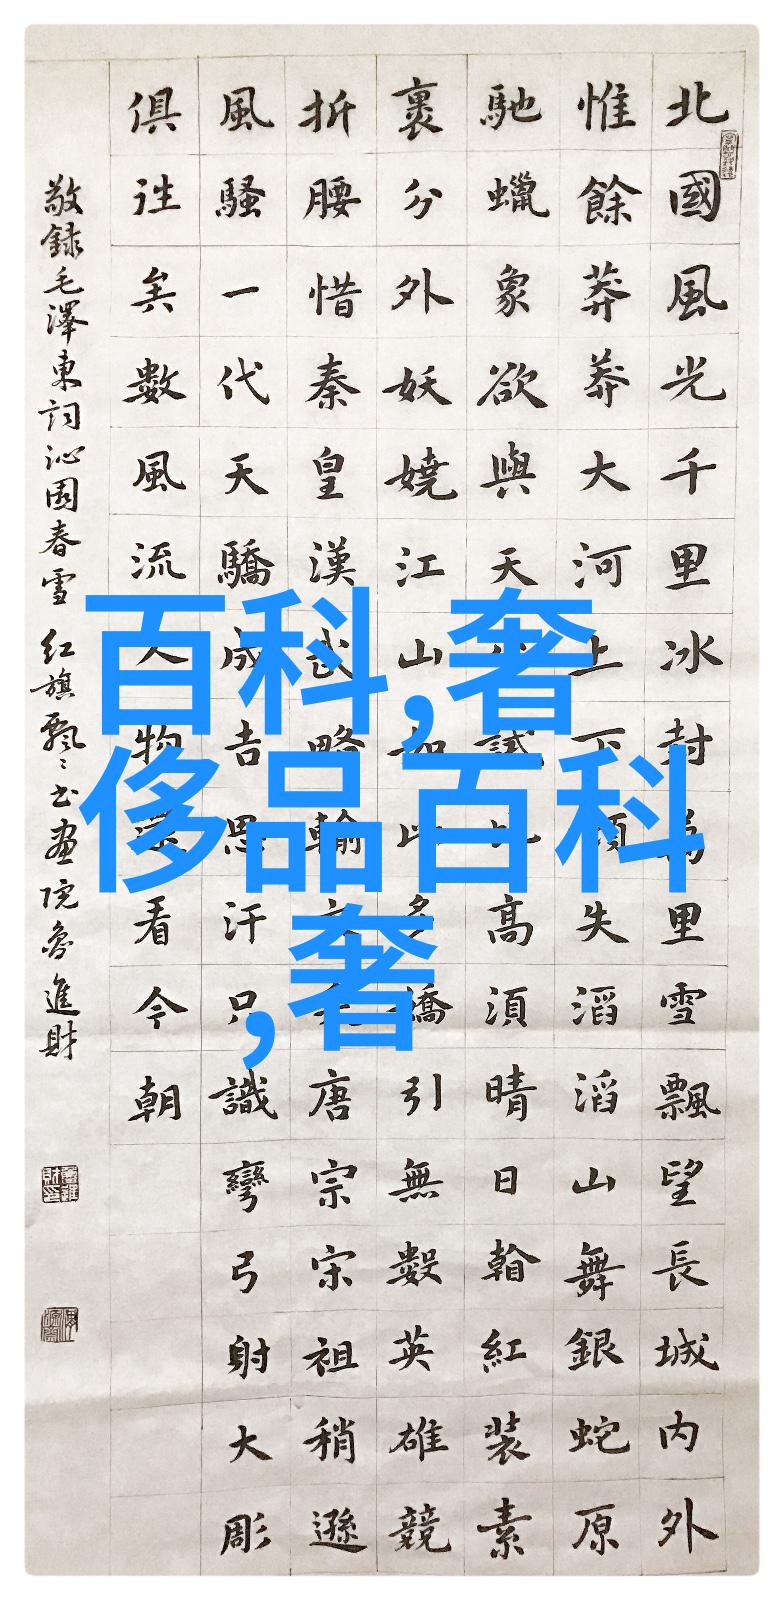 北國風光千里冰封萬里雪飄望長城内外
惟餘莽莽大河上下頓失滔滔山舞銀蛇原
馳蠟象欲與天公試比高須晴日翰紅裝素
裹分外妖嬈江山如此多嬌引無數英雄競
折腰惜秦皇漢武略輸文采唐宗宋祖稍遜
風騷一代天驕成吉思汗只識彎弓射大彫
俱往矣數風流人物還看今朝
敬録毛澤東詞沁園春雪 红旗飄〻书画院魯進財
百科,奢
侈品百科
,奢